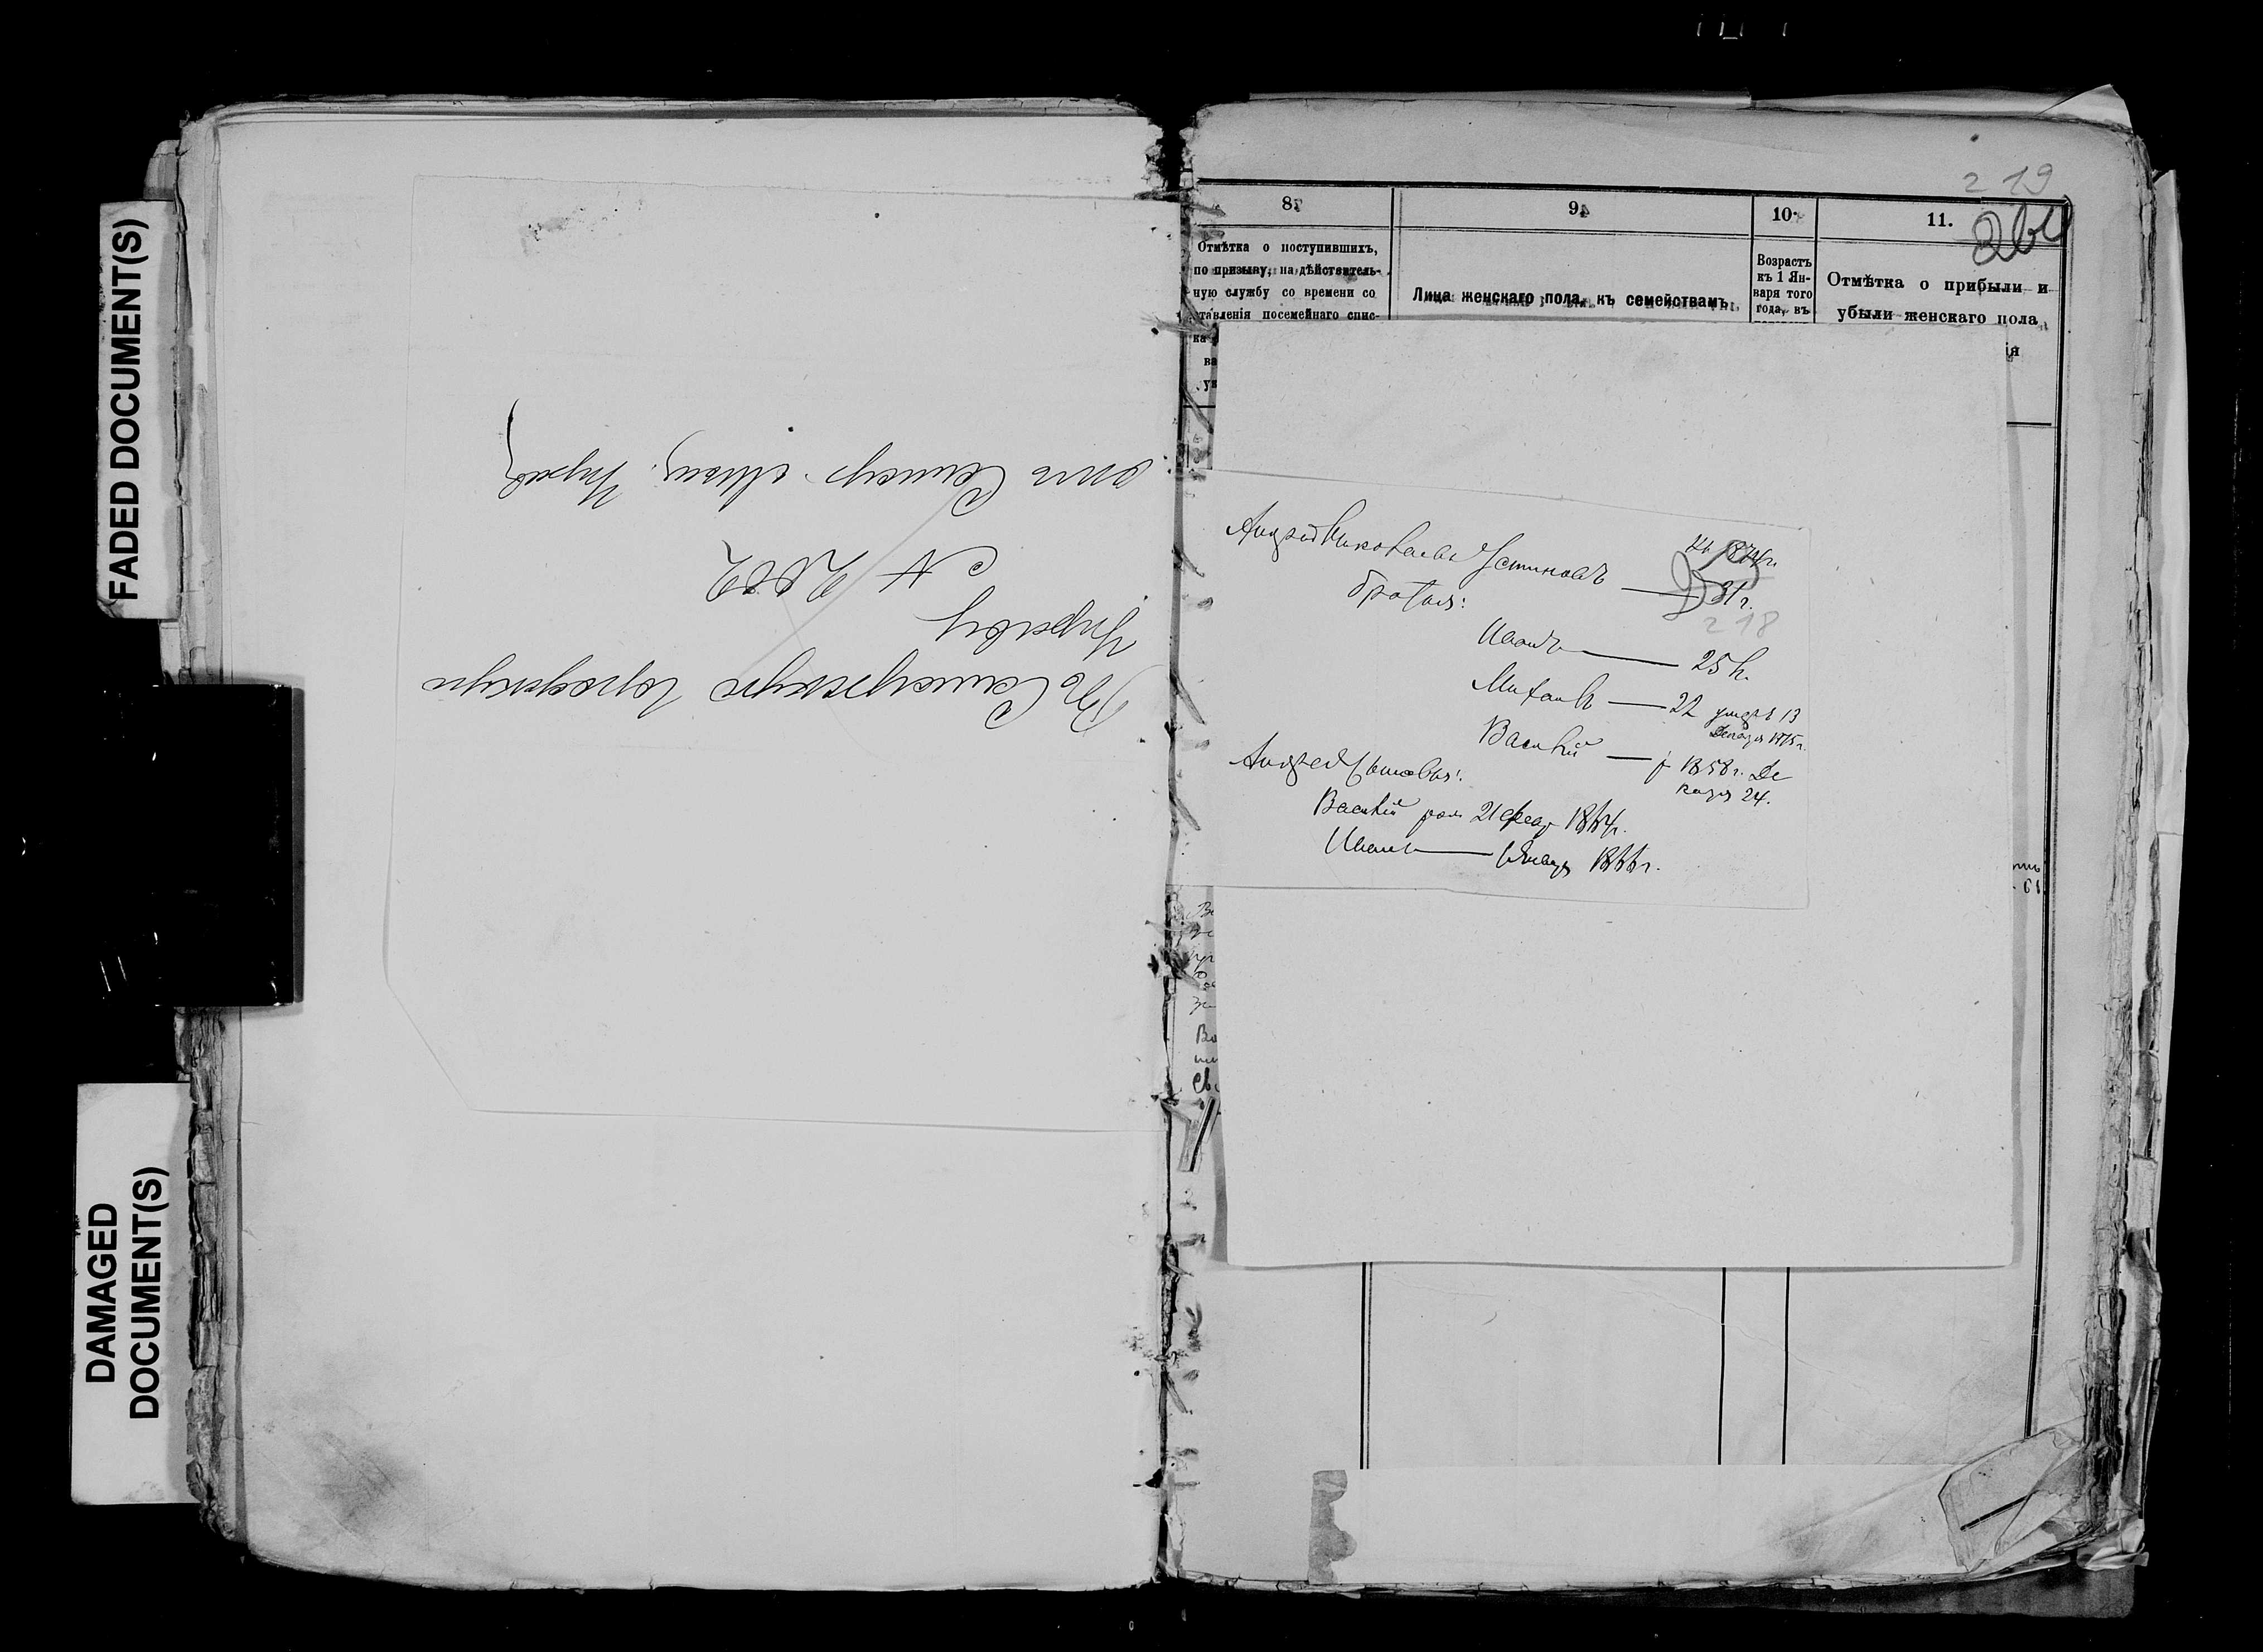 FADED DOCUMENT(S)
DAMAGED
DOCUMENT(S)
Въ Самарскую Городскую
Управу
№ 2882
отъ Самар. Мѣщ. Управ
219
8.
9.
10.
11.
Отмѣтка о поступившихъ,
по призыву, на дѣйствитель-
ную службу со времени со
ставленія посемейнаго спис-
ка
ва
ув
Лица женскаго пола, къ семействамъ
Возрастъ
къ 1 Ян-
варя того
года, въ
Отмѣтка о прибыли и
убыли женскаго пола
ія
Андрей Николаевъ Устиновъ — 31 г.
къ 1874 г.
братья:
218
Иванъ — 25 л.
Михаилъ — 22 умеръ 13
Декабря 1875 г.
Василий — р 1858 г. Де
кабря 24.
Андрея Сыновья:
Василий род 21 февр 1864 г.
Иванъ — Январ 1866 г.